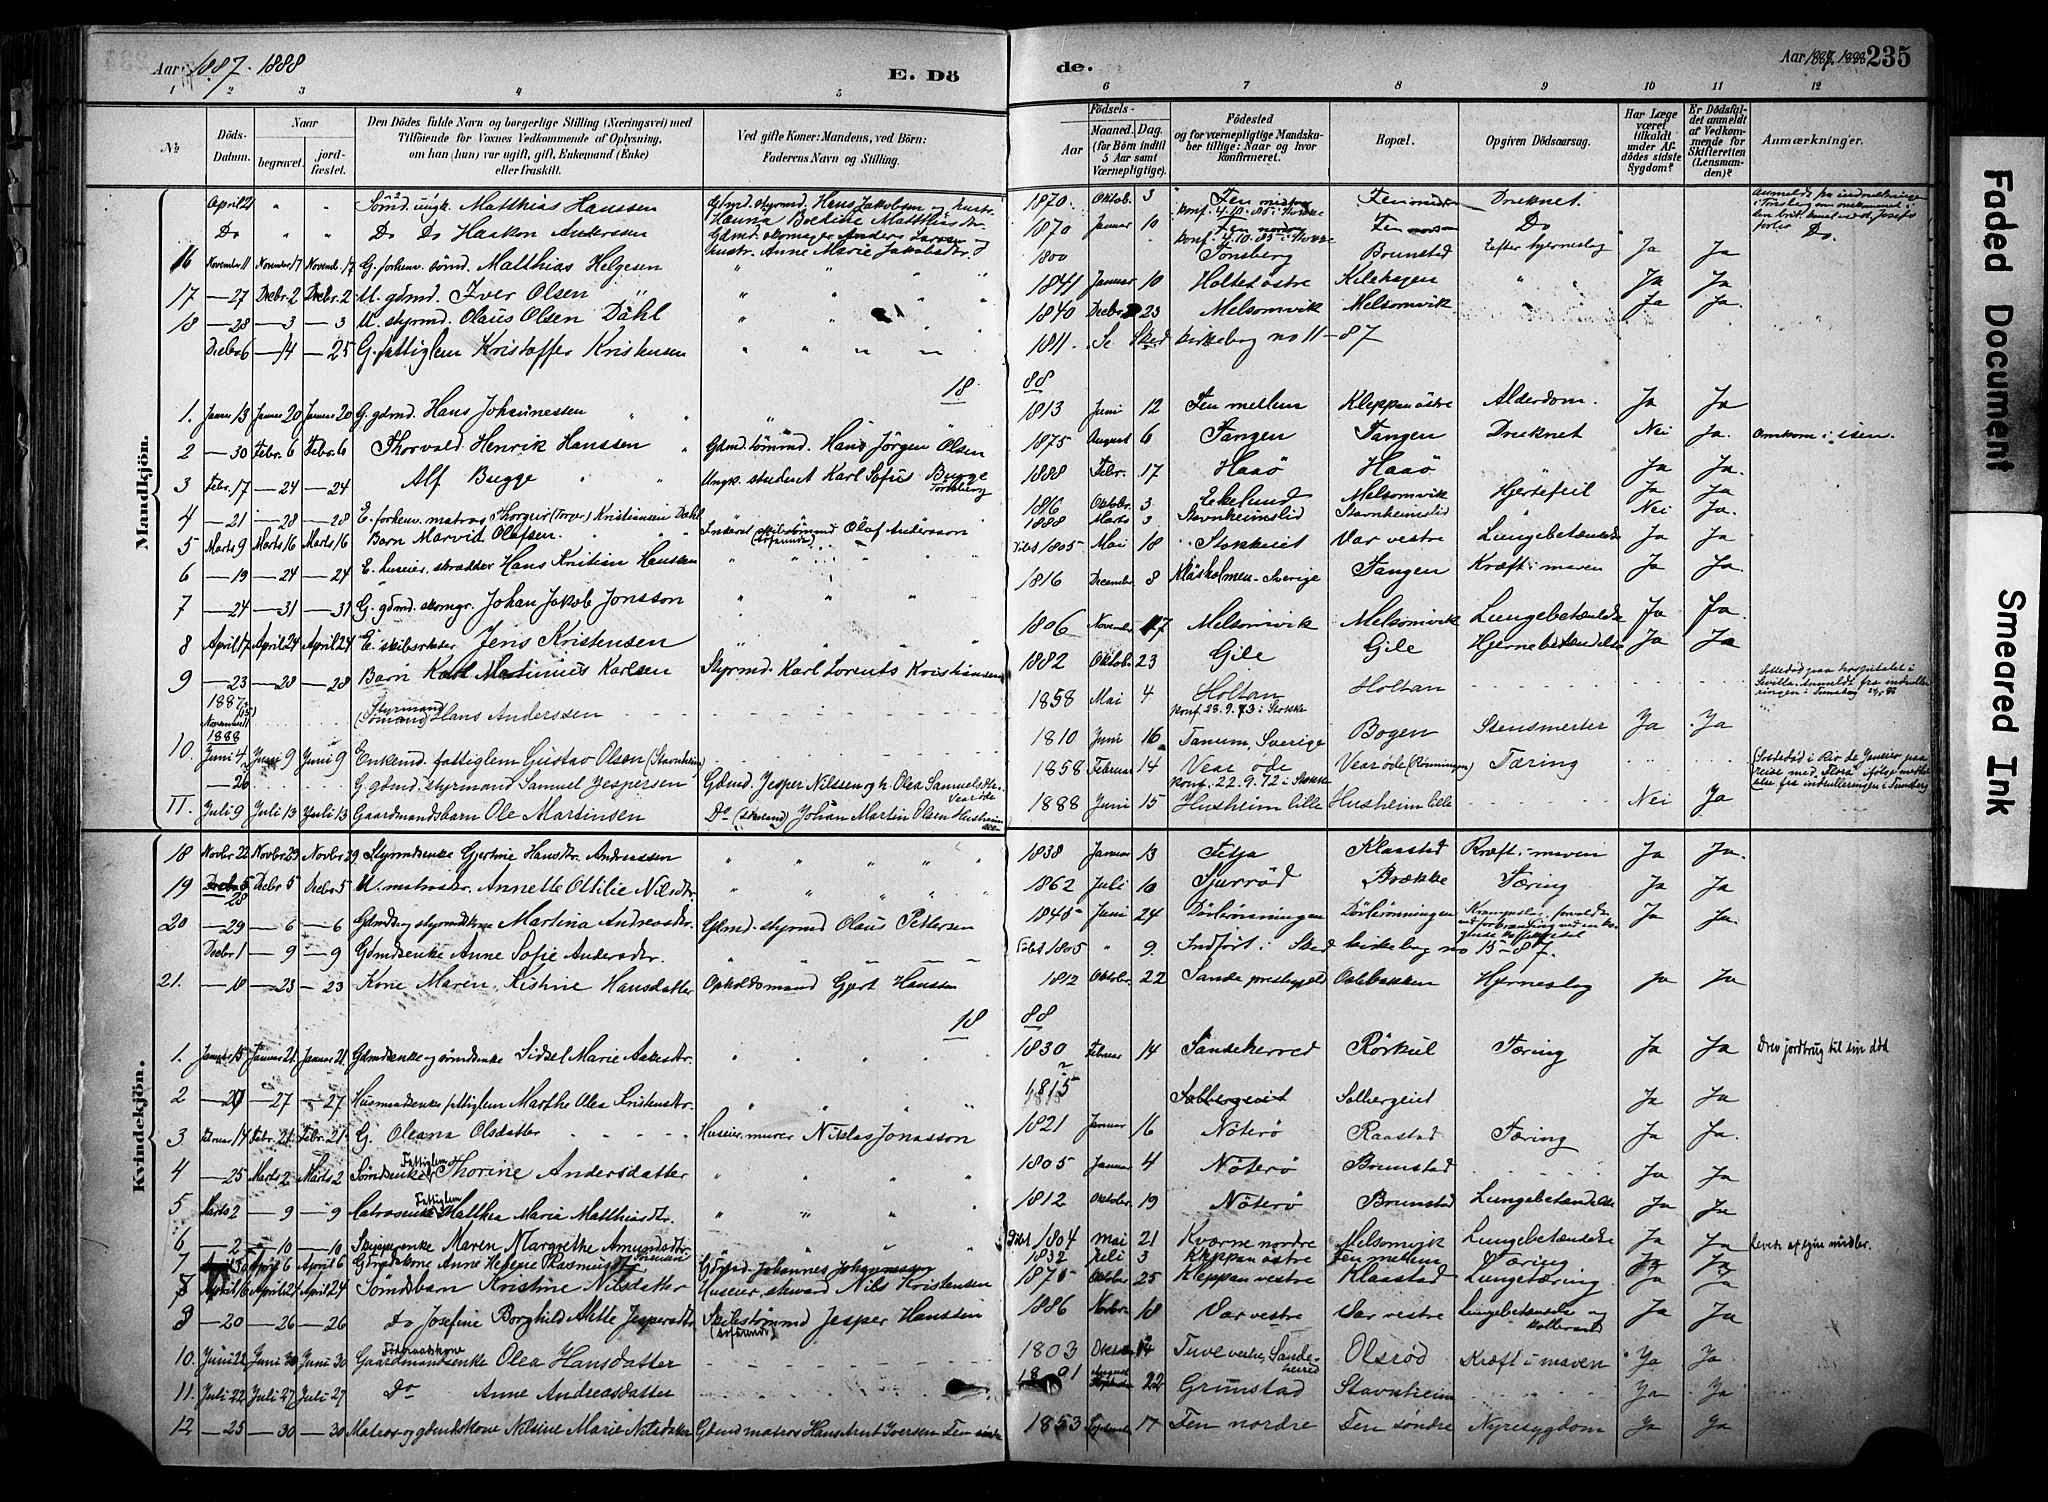 Aar 1887. 1888
E. Dö
de.
Aar 1887. 1888 235
1 2 3 4 5 6 7 8 9 10 11 12
№ Döds-Datum. Naar begravet. jordfæstet. Den Dödes fulde Navn og borgerlige Stilling (Næringsvei) med Tilföiende for Voxnes Vedkommende af Oplysning, om han (hun) var ugift, gift, Enkemand (Enke) eller fraskilt. Ved gifte Koner: Mandens, ved Börn: Faderens Navn og Stilling. Födsels- Aar Maaned. Dag. (for Börn indtil 5 Aar samt Værnepligtige). Födested og for værnepligtige Mandskaber tillige: Naar og hvor konfirmeret. Bopæl. Opgiven Dödsaarsag. Har Læge været tilkaldt under Afdödes sidste Sygdom? Er Dödsfaldet anmeldt af Vedkommende for Skifteretten (Lensmanden)? Anmærkninger.
Mandkjön.
April 21 " " Sømd. ungk. Matthias Hanssen Gdmd. styrmd. Hans Jakobsen og hustr. Hanna Boedine Matthiasdtr. 1870 Oktob. 3 Fen konf. 4.10.85 i Stokke Fen Druknet
Do " " Do Do Haakon Anderssen Gdmd. skomager Anders Larsen og hustr. Anne Marie Jakobsdtr. 1870 Januar 10 Fen nordre konf. 4.10.85 i Stokke Fen Do Do.
16 November 11 November 17 Novemb. 17 G. forhenv. sømd. Matthias Helgesen " " 1800 Tønsberg Brunstad Efter hjerneslag Ja Ja
17 — 27 Decbr. 2 Decbr. 2 U. gdmd. Iver Olsen " " 1841 Januar 10 Holtet østre Kilehagen " " Ja Ja
18 — 28 — 3 — 3 U. styrmd. Olaus Olsen Dahl " " 1840 Decbr 23 Melsomvik Melsomvik " Ja Ja.
Decbr 6 — 14 — 25 G. fattiglem Kristoffer Kristensen " " " 1811. Se Sked kirkebog no 11 — 87
18 88
1. Januar 13 Januar 20 Januar 20 G. gdmd. Hans Johannessen " " 1813 Juni 12 Fen mellem Kleppan østre Alderdom. Ja Ja
2 — 30 Febr. 6 Febr. 6 Thorvald Henrik Hanssen Gdmd. sømmd. Hans Jörgen Olsen 1875 August 6 Tangen Tangen Druknet Nei Ja. Omkom i isen.
3 Febr. 17 — 24 — 24 Alf Bugge Ungk. student Karl Sofus Bugge Tønsberg 1888 Febr. 17 Haaö Haaö Ja Ja.
4 — 21 — 28 — 28 E. forhenv. matros Thorger (Torge) Kristiansen Dahl 1816 Oktobr. 3 Ekelund Melsomvik Hjertefeil Ja Ja
5 Marts 9 Marts 16 Marts 16 Barn Marvid Olafsen. Inderst skibstømmd Olaf Andersson 1888 Marts 3 Stavnheimslid Stavnheimslid Nei Ja.
6 — 19 — 24 — 24 E. huseier, skrædder Hans Kristian Hansen Fibst 1805 Mai 18 Stokkeeit Var vestre Lungebetændelse Ja Ja
7 — 24 — 31 — 31 G. gdmd. skomgr. Johan Jakob Jonsson " " 1816 December 8 Klåsholmen — Sverige Tangen Kræft i maven Ja Ja.
8 April 17 April 24 April 24 E. skibsreder Jens Kristensen " " 1806 November 17 Melsomvik Melsomvik Lungebetændelse Ja Ja
9 — 23 — 28 — 28 Barn Karl Martinius Karlsen Styrmd. Karl Lorents Kristiansen 1882 Oktob. 23 Gile Gile Hjernebetændelse Ja Ja
1887 November 11 Styrmand (Sømand) Hans Anderssen 1858 Mai 4 Holtan konf. 28.9.73 i Stokke Holtan
1888
10. Juni 4 Juni 9 Juni 9 Enkemd. fattiglem Gustav Olsen (Stavnheim) 1810 Juni 16 Tanum, Sverige Bogen Stensmerter Ja Ja
— 26 G gdmd. styrmand Samuel Jespersen Gdmd. Jesper Nilssen og h. Olea Samuelsdtr. Vearøde 1858 Februar 14 Vear øde Konf. 22.9.72 i Stokke Vearøde (Rönningen) Tæring
11. Juli 9 Juli 13 Juli 13 Gaardmandsbarn Ole Martinsen Do (sømand) Johan Martin Olsen Husheim lille 1888 Juni 15 Husheim lille Husheim lille Nei Ja
Kvindekjön.
18 Novbr. 22 Novbr 29 Novbr 29 Styrmdsenke Gjertine Hansdtr. Andreassen " " 1838 Januar 13 Fetja Klaastad Kræft i maven Ja Ja.
19 28 Decbr 5 Decbr 5 U. matrosdtr. Annette Ottilie Nilsdtr. " " 1862 Juli 10 Sjurröd Brække Tæring Ja Ja
20 — 29 — 6 — 6 Gdmds og styrmdskone Martina Andreasdtr. Gdmd. styrmd Olaus Pettersen 1845 Juni 24 Dörbrönningen Dörbrönningen Ja Ja.
Decbr 1 — 9 — 9 Gdmdsenke Anne Sofie Andersdtr. Fibst 1805 " 9. Indført i Sked kirkebog no 15 — 87.
21. — 18 — 23 — 23 Kone Maren Kistine Hansdatter Opholdsmand Gjert Hansen 1812 Oktobr. 22 Sande prestegjeld Oslebakken Hjerneslag Ja Ja
18 88
1. Januar 15 Januar 21 Januar 21 Gdmdsenke og sømdsenke Sidsel Marie Aslesdtr. 1830 Februar 14 Sandeherred Rörkul Tæring Ja Ja Drev jordbrug til sin död
2 — 20 — 27 — 27 Husmandsenke fattiglem Marthe Olea Kristensdtr. 1815 Solbergeiet Solbergeiet Ja Ja
3 Februar 14 Febr. 21 Febr. 21 G. Oleana Olsdatter Huseier. murer Niklas Jonasson 1821 Januar 16 Nöterö Raastad Tæring Ja Ja.
4 — 25 Marts 2 Marts 2 Sømdsenke Fattiglem Thorine Andersdatter 1805 Januar 4 Nöterö Brunstad Ja Ja
5 Marts 2 — 9 — 9 Matrosenke Fattiglem Matthea Maria Matthiasdtr. 1812 Oktober 19 Nöterö Brunstad Lungebetændelse Ja Ja
6 — 2 — 10 — 10 Skipperenke Maren Margrethe Amundsdtr Fibst 1804 mai 21 Kværne nordre Melsomvik Lungebetændelse Ja Ja Levede af egne midler.
7 April 6 April 6 Gdmdskone Anne Helene Rasmusdtr Gdmd. Johannes Johannessen 1832 Juli 3 Kleppan østre Fen mellem Tæring Ja Ja
8 April 16 April 24 April 24 Sømdsbarn Kristine Nilsdatter Huseier, steward Nils Kristensen 1875 Oktober 25 Kleppan vestre Klaastad Lungetæring Ja Ja
9 — 20 — 26 — 26 Do Josefine Borghild Alette Jespersdtr Skibstømmd Jesper Hanssen 1886 Novbr 18 Var vestre Var vestre Lungebetændelse og Ja Ja
10. Juni 22 Juni 30 Juni 30 Gaardmandsenke Föderaadskone Olea Hansdatter 1803 14 Tuve vestre, Sandeherred Olsröd Kræft i maven Ja Ja
11. Juli 22 Juli 27 Juli 27 Do Anne Andreasdatter 1801 August 22 Grimstad Stavnheim Ja Ja
12 — 25 — 30 — 30 Matros og gdmdskone Nilsine Marie Nilsdatter Gdmd matros Hans Arnt Iversen Fen søndre 1853 17 Fen nordre Fen søndre Nyresygdom Ja Ja
Faded Document
Smeared Ink